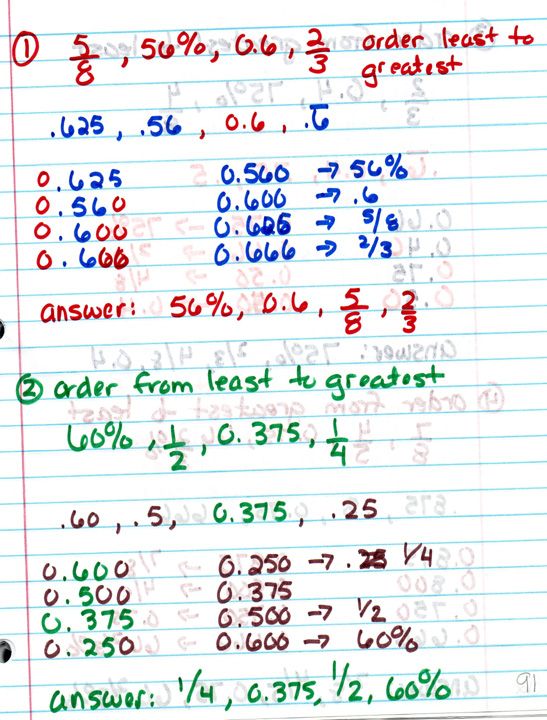 ① 5/8, 56%, 0.6, 2/3 order least to
greatest
.625, .56, 0.6, .6̅
0.625 0.560 → 56%
0.560 0.600 → .6
0.600 0.625 → 5/8
0.666 0.666 → 2/3
answer: 56%, 0.6, 5/8, 2/3
② order from least to greatest
60%, 1/2, 0.375, 1/4
.60, .5, 0.375, .25
0.600 0.250 → 1/4
0.500 0.375
0.375 0.500 → 1/2
0.250 0.600 → 60%
answer: 1/4, 0.375, 1/2, 60%
91